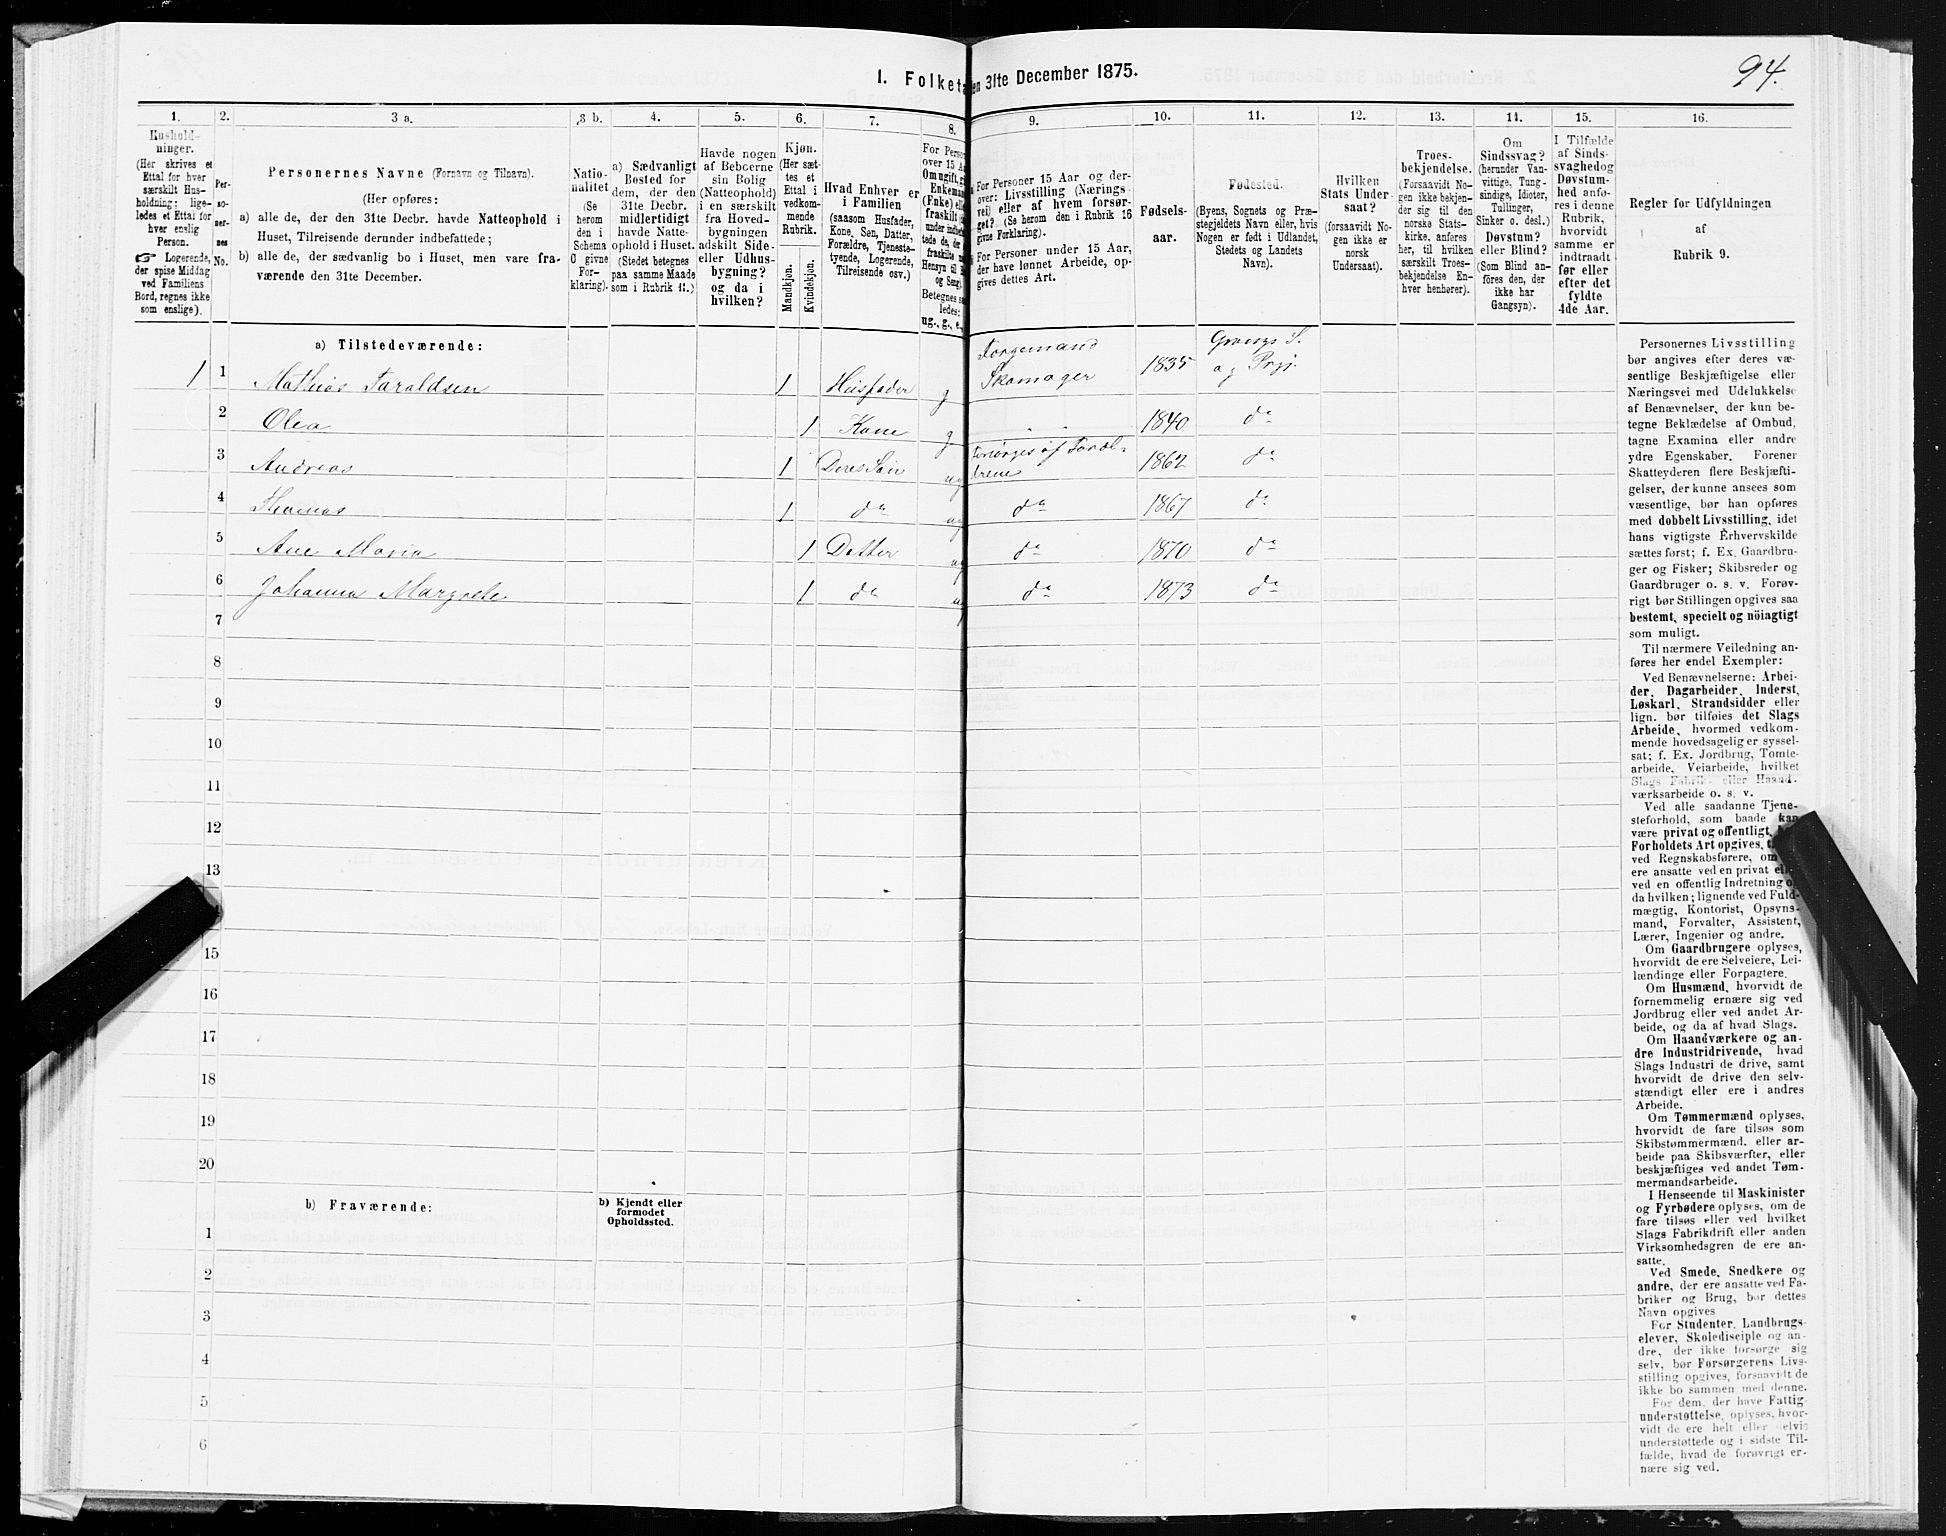 94.
I. Folketa en 31te December 1875.
1. 2. 3 a. 3 b. 4. 5. 6. 7. 8. 9. 10. 11. 12. 13. 14. 15. 16.
Hushold-
ninger.
(Her skrives et
Ettal for hver
særskilt Hus-
holdning; lige-
ledes et Ettal for
hver enslig
Person.
☞ Logerende,
der spise Middag
ved Familiens
Bord, regnes ikke
som enslige).
Per-
so-
ner-
nes
No.
Personernes Navne (Fornavn og Tilnavn).
(Her opføres:
a) alle de, der den 31te Decbr. havde Natteophold i
Huset, Tilreisende derunder indbefattede;
b) alle de, der sædvanlig bo i Huset, men vare fra-
værende den 31te December.
Natio-
nalitet
(Se
herom
den i
Schema
O givne
For-
klaring).
a) Sædvanligt
Bosted for
dem, der den
31te Decbr.
midlertidigt
havde Natte-
ophold i Huset.
(Stedet betegnes
paa samme Maade
som i Rubrik 11.)
Havde nogen
af Beboerne
sin Bolig
(Natteophold)
i en særskilt
fra Hoved-
bygningen
adskilt Side-
eller Udhus-
bygning?
og da i
hvilken?
Kjøn.
(Her sæt-
tes et
Ettal i
vedkom-
mende
Rubrik.
Mandkjøn.
Kvindekjøn.
Hvad Enhver er
i Familien
(saasom Husfader,
Kone, Søn, Datter,
Forældre, Tjeneste-
tyende, Logerende,
Tilreisende osv.)
For Person
over 15 Aa
Om ugift, gi
Enkeman
(Enke) elle
fraskilt
under indbefat
tede de, der e
fraskilte
Hensyn til B
og Seng).
Betegnes s
ledes:
ug., g., e.,
For Personer 15 Aar og der-
over: Livsstilling (Nærings-
vei) eller af hvem forsør-
get? (Se herom den i Rubrik 16
givne Forklaring).
For Personer under 15 Aar,
der have lønnet Arbeide, op-
gives dettes Art.
Fødsels-
aar.
Fødested.
(Byens, Sognets og Præ-
stegjeldets Navn eller, hvis
Nogen er født i Udlandet,
Stedets og Landets
Navn).
Hvilken
Stats Under-
saat?
(forsaavidt No-
gen ikke er
norsk
Undersaat).
Troes-
bekjendelse.
(Forsaavidt No-
gen ikke bekjen-
der sig til den
norske Stats-
kirke, anføres
her, til hvilken
særskilt Troes-
bekjendelse En-
hver henhører).
Om
Sindssvag?
(herunder Van-
vittige, Tung-
sindige, Idioter,
Tullinger,
Sinker o. desl.)
Døvstum?
eller Blind?
(Som Blind an-
føres den, der
ikke har
Gangsyn).
I Tilfælde
af Sinds-
svaghed og
Døvstum-
hed anfø-
res i denne
Rubrik,
hvorvidt
samme er
indtraadt
før eller
efter det
fyldte
4de Aar.
Regler for Udfyldningen
af
Rubrik 9.
a) Tilstedeværende:
1 1 Mathias Taraldsen 1 Husfader g Torgemand Skomager 1835 Grangs S. og Prgj.
2 Olea 1 Kone g - - 1840 do
3 Andreas 1 Deres Søn ug Forsørges af Foræl- drene 1862 do
4 Thomas 1 do ug do 1867 do
5 Ane Maria 1 Datter ug do 1870 do
6 Johanna Margrete 1 do ug do 1873 do
7
8
9
10
11
12
13
15
16
17
18
19
20
b) Fraværende:
b) Kjendt eller
formodet
Opholdssted.
1
2
3
4
5
6
Personernes Livsstilling
bør angives efter deres væ-
sentlige Beskjæftigelse eller
Næringsvei med Udelukkelse
af Benævnelser, der kun be-
tegne Beklædelse af Ombud,
tagne Examina eller andre
ydre Egenskaber. Forener
Skatteyderen flere Beskjæfti-
gelser, der kunne ansees som
væsentlige, bør han opføres
med dobbelt Livsstilling, idet
hans vigtigste Erhvervskilde
sættes først; f. Ex. Gaardbru-
ger og Fisker; Skibsreder og
Gaardbruger o. s. v. Forøv-
rigt bør Stillingen opgives saa
bestemt, specielt og nöiagtigt
som muligt.
Til nærmere Veiledning an-
føres her endel Exempler:
Ved Benævnelserne: Arbei-
der, Dagarbeider, Inderst,
Løskarl, Strandsidder eller
lign. bør tilføies det Slags
Arbeide, hvormed vedkom-
mende hovedsagelig er syssel-
sat; f. Ex. Jordbrug, Tomte-
arbeide, Veiarbeide, hvilket
Slags Fabrik- eller Haand-
værksarbeide o. s. v.
Ved alle saadanne Tjene-
steforhold, som baade kan
være privat og offentligt,
Forholdets Art opgives,
ved Regnskabsførere, om
ere ansatte ved en privat
ved en offentlig Indretning
da hvilken; lignende ved Fuld-
mægtig, Kontorist, Opsyns-
mand, Forvalter, Assistent,
Lærer, Ingeniør og andre.
Om Gaardbrugere oplyses,
hvorvidt de ere Selveiere, Lei-
lændinge eller Forpagtere.
Om Husmænd, hvorvidt de
fornemmelig ernære sig ved
Jordbrug eller ved andet Ar-
beide, og da af hvad Slags.
Om Haandværkere og an-
dre Industridrivende, hvad
Slags Industri de drive, samt
hvorvidt de drive den selv-
stændigt eller ere i andres
Arbeide.
Om Tømmermænd oplyses,
hvorvidt de fare tilsøs som
Skibstømmermænd. eller ar-
beide paa Skibsværfter, eller
beskjæftiges ved andet Tøm-
mermandsarbeide.
I Henseende til Maskinister
og Fyrbødere oplyses, om de
fare tilsøs eller ved hvilket
Slags Fabrikdrift eller anden
Virksomhedsgren de ere an-
satte.
Ved Smede, Snedkere og
andre, der ere ansatte ved Fa-
briker og Brug, bør dettes
Navn opgives
For Studenter, Landbrugs-
elever, Skoledisciple og an-
dre, der ikke forsørge sig
selv, bør Forsørgerens Livs-
stilling opgives, forsaavidt de
ikke bo sammen med denne.
For dem, der have Fattig-
understøttelse, oplyses, hvor-
vidt de ere helt eller delvis
understøttede og i sidste Til-
fælde, hvad de forøvrigt er-
nære sig ved.